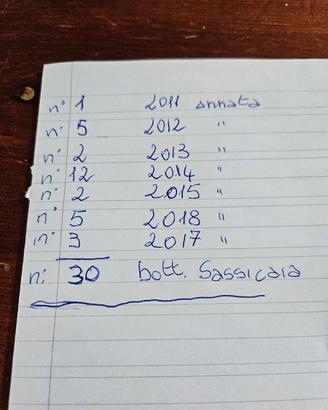 n° 1 2011 Annata
n° 5 2012 "
n° 2 2013 "
n° 12 2014 "
n° 2 2015 "
n° 5 2018 "
n° 3 2017 "
n: 30 bott. Sassicaia